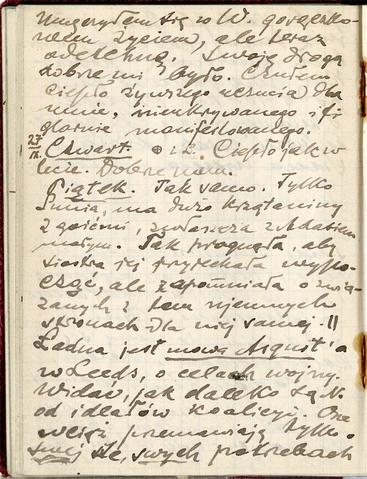 zmęczyłem się w W. gorączko-
wem życiem, ale teraz
odetchnę. Swoją drogą
dobrze mi było. Czułem
ciepło żywszego uczucia dla
mnie, nieukrywanego i fi
glarnie manifestowanego.
27/IX. Czwart. Ciepło jak w
lecie. Dobrze nam.
Piątek. Tak samo. Tylko
ma dużo krzątaniny
z gośćmi, zwłaszcza z Adasiem
małym. Tak pragnęła, aby
siostra jej przyjechała wypo-
cząć, ale zapomniała o zwią-
zanych z tem ujemnych
stronach dla niej samej. !!
Ładna jest mowa Asquit'a
w Leeds, o celach wojny.
Widać, jak daleko są N.
od ideałów koalicyi. One
wciąż przemawiają tylko
swej sile, swych potrzebach